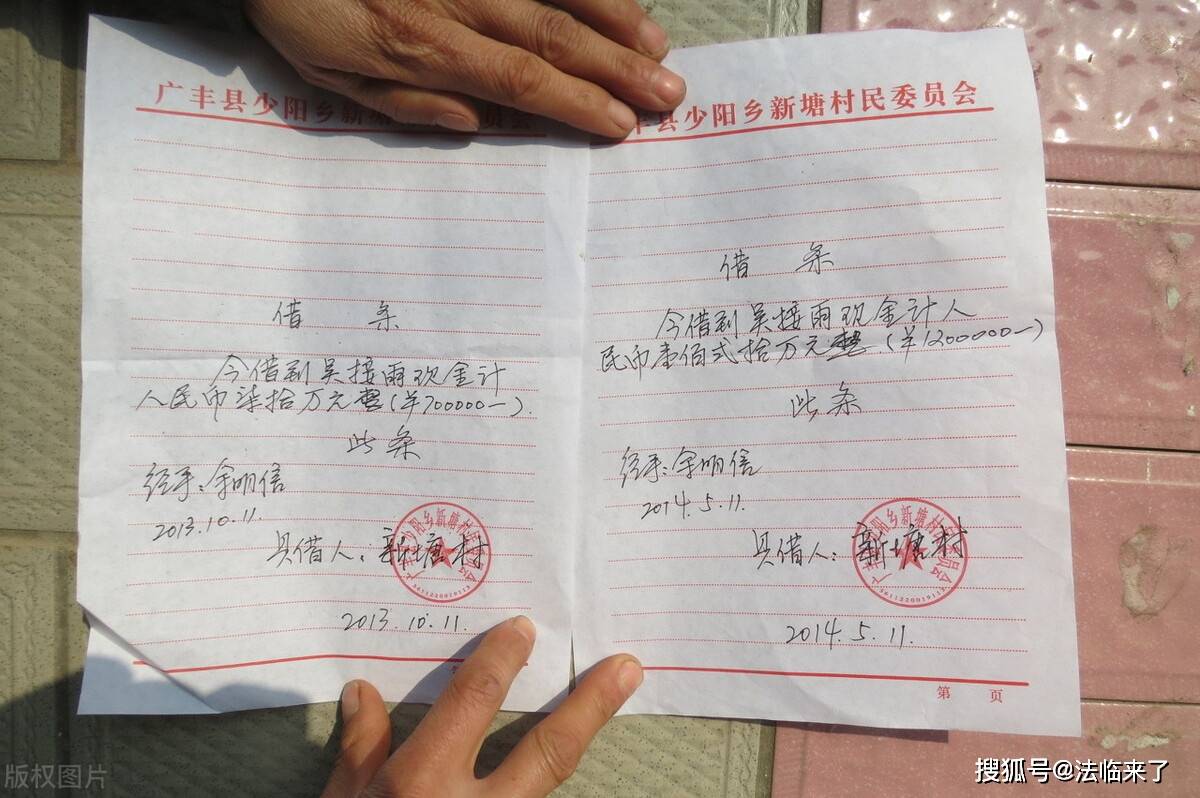 广丰县少阳乡新塘村民委员会
借 条
今借到吴接雨现金计
人民币柒拾万元整(羊700000一).
此条
经手:余明信
2013.10.11.
具借人:新塘村
2013.10.11.
丰县少阳乡新塘村民委员会
借 条
今借到吴接雨现金计人
民币壹佰式拾万元整(羊1200000一)
此条
经手:余明信
2014.5.11.
具借人:新塘村
2014.5.11.
第 页
版权图片
搜狐号@法临来了